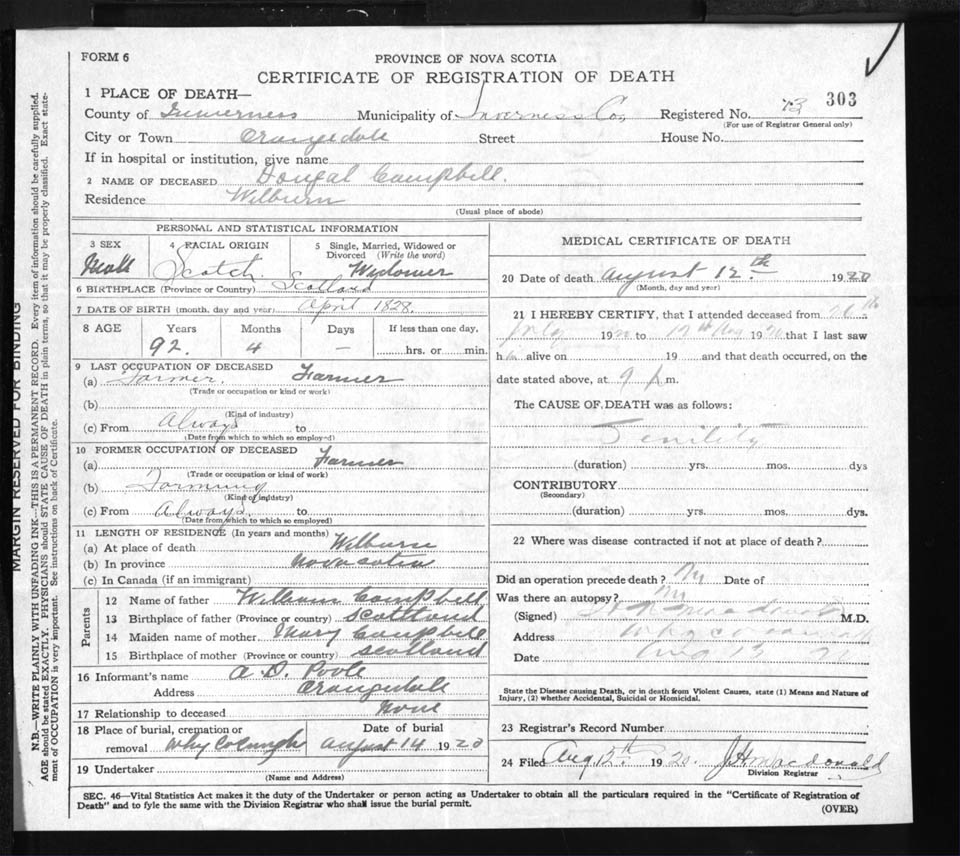 FORM 6
PROVINCE OF NOVA SCOTIA
CERTIFICATE OF REGISTRATION OF DEATH
303
1 PLACE OF DEATH—
County of Inverness Municipality of Inverness Co, Registered No. 73
(For use of Registrar General only)
City or Town Orangedale Street House No.
If in hospital or institution, give name
2 NAME OF DECEASED Dougal Campbell.
Residence Wilburn
(Usual place of abode)
PERSONAL AND STATISTICAL INFORMATION
3 SEX 4 RACIAL ORIGIN 5 Single, Married, Widowed or Divorced (Write the word)
Male Scotch Widower
6 BIRTHPLACE (Province or Country) Scotland
7 DATE OF BIRTH (month, day and year) April 1828.
8 AGE Years Months Days If less than one day,
92. 4 — hrs. or min.
9 LAST OCCUPATION OF DECEASED
(a) Farmer. Farmer
(Trade or occupation or kind or work)
(b)
(Kind of industry)
(c) From Always to
(Date from which to which so employed)
10 FORMER OCCUPATION OF DECEASED
(a) Farmer
(Trade or occupation or kind of work)
(b) Farming
(Kind of industry)
(c) From Always. to
(Date from which to which so employed)
11 LENGTH OF RESIDENCE (In years and months)
(a) At place of death Wilburn
(b) In province
(c) In Canada (if an immigrant)
Parents
12 Name of father William Campbell
13 Birthplace of father (Province or country) Scotland
14 Maiden name of mother Mary Campbell
15 Birthplace of mother (Province or country) Scotland
16 Informant's name A. D. Poole
Address Orangedale
17 Relationship to deceased None
18 Place of burial, cremation or removal Date of burial
August 14 1920
19 Undertaker
(Name and Address)
MEDICAL CERTIFICATE OF DEATH
20 Date of death August 12th 1920
(Month, day and year)
21 I HEREBY CERTIFY, that I attended deceased from
July 19 to 12th Aug 1920 that I last saw
h alive on 19 and that death occurred, on the
date stated above, at 9 p.m.
The CAUSE OF DEATH was as follows:
Senility
(duration) yrs. mos. dys
CONTRIBUTORY
(Secondary)
(duration) yrs. mos. dys.
22 Where was disease contracted if not at place of death?
Did an operation precede death? No Date of
Was there an autopsy? No
(Signed) M.D.
Address
Date Aug 13
State the Disease causing Death, or in death from Violent Causes, state (1) Means and Nature of
Injury, (2) whether Accidental, Suicidal or Homicidal.
23 Registrar's Record Number
24 Filed Aug 12th 1920. J H Macdonald
Division Registrar
SEC. 46—Vital Statistics Act makes it the duty of the Undertaker or person acting as Undertaker to obtain all the particulars required in the "Certificate of Registration of
Death" and to fyle the same with the Division Registrar who shall issue the burial permit.
(OVER)
MARGIN RESERVED FOR BINDING
N.B.—WRITE PLAINLY WITH UNFADING INK—THIS IS A PERMANENT RECORD. Every item of information should be carefully supplied.
AGE should be stated EXACTLY. PHYSICIANS should STATE CAUSE OF DEATH in plain terms, so that it may be properly classified. Exact state-
ment of OCCUPATION is very important. See instructions on back of Certificate.